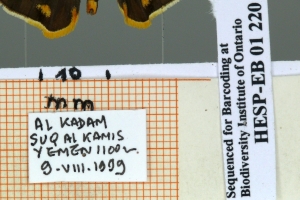 10
mm
AL KADAM
SUQ AL KAMIS
YEMEN 1100m
9-VIII-1999
Sequenced for Barcoding at
Biodiversity Institute of Ontario
HESP-EB 01 220